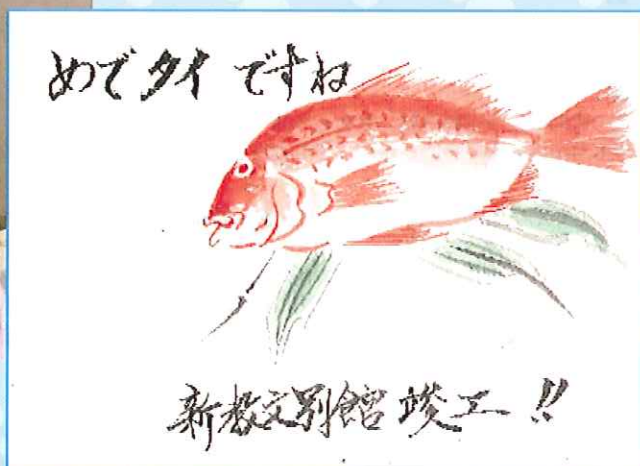 めでタイですね
新教文別館竣工!!